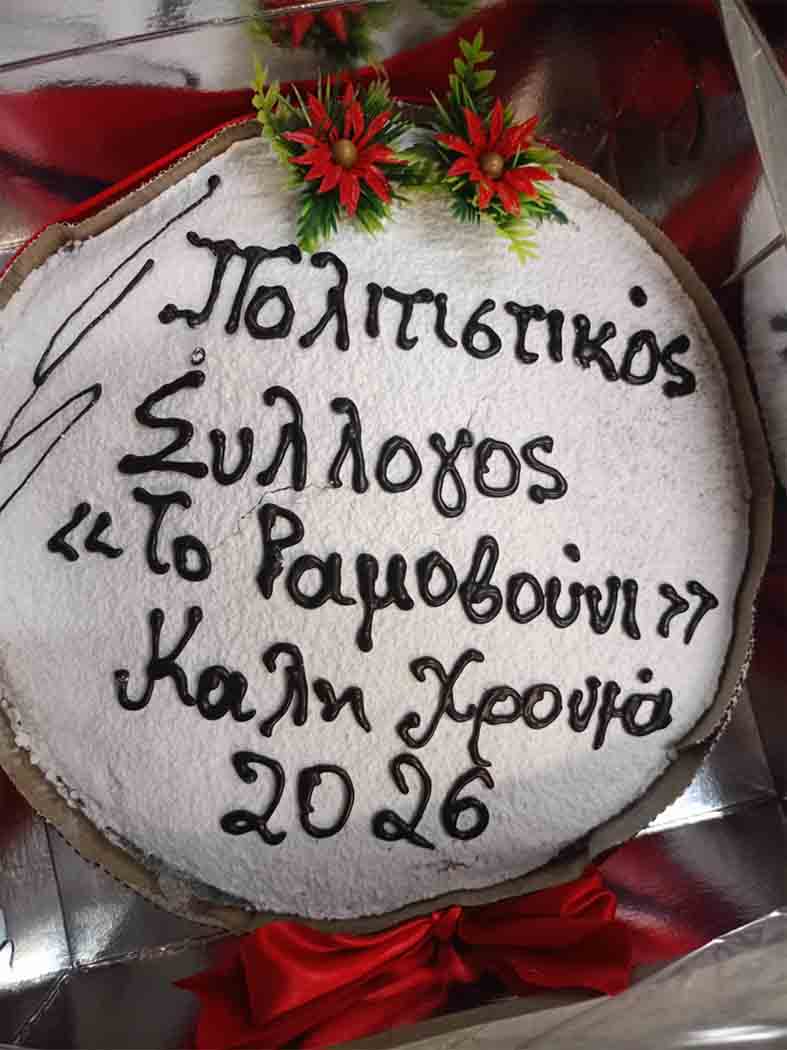 Πολιτιστικός
Συλλογος
«Το Ραμοβούνι»
Καλη Χρονιά
2026